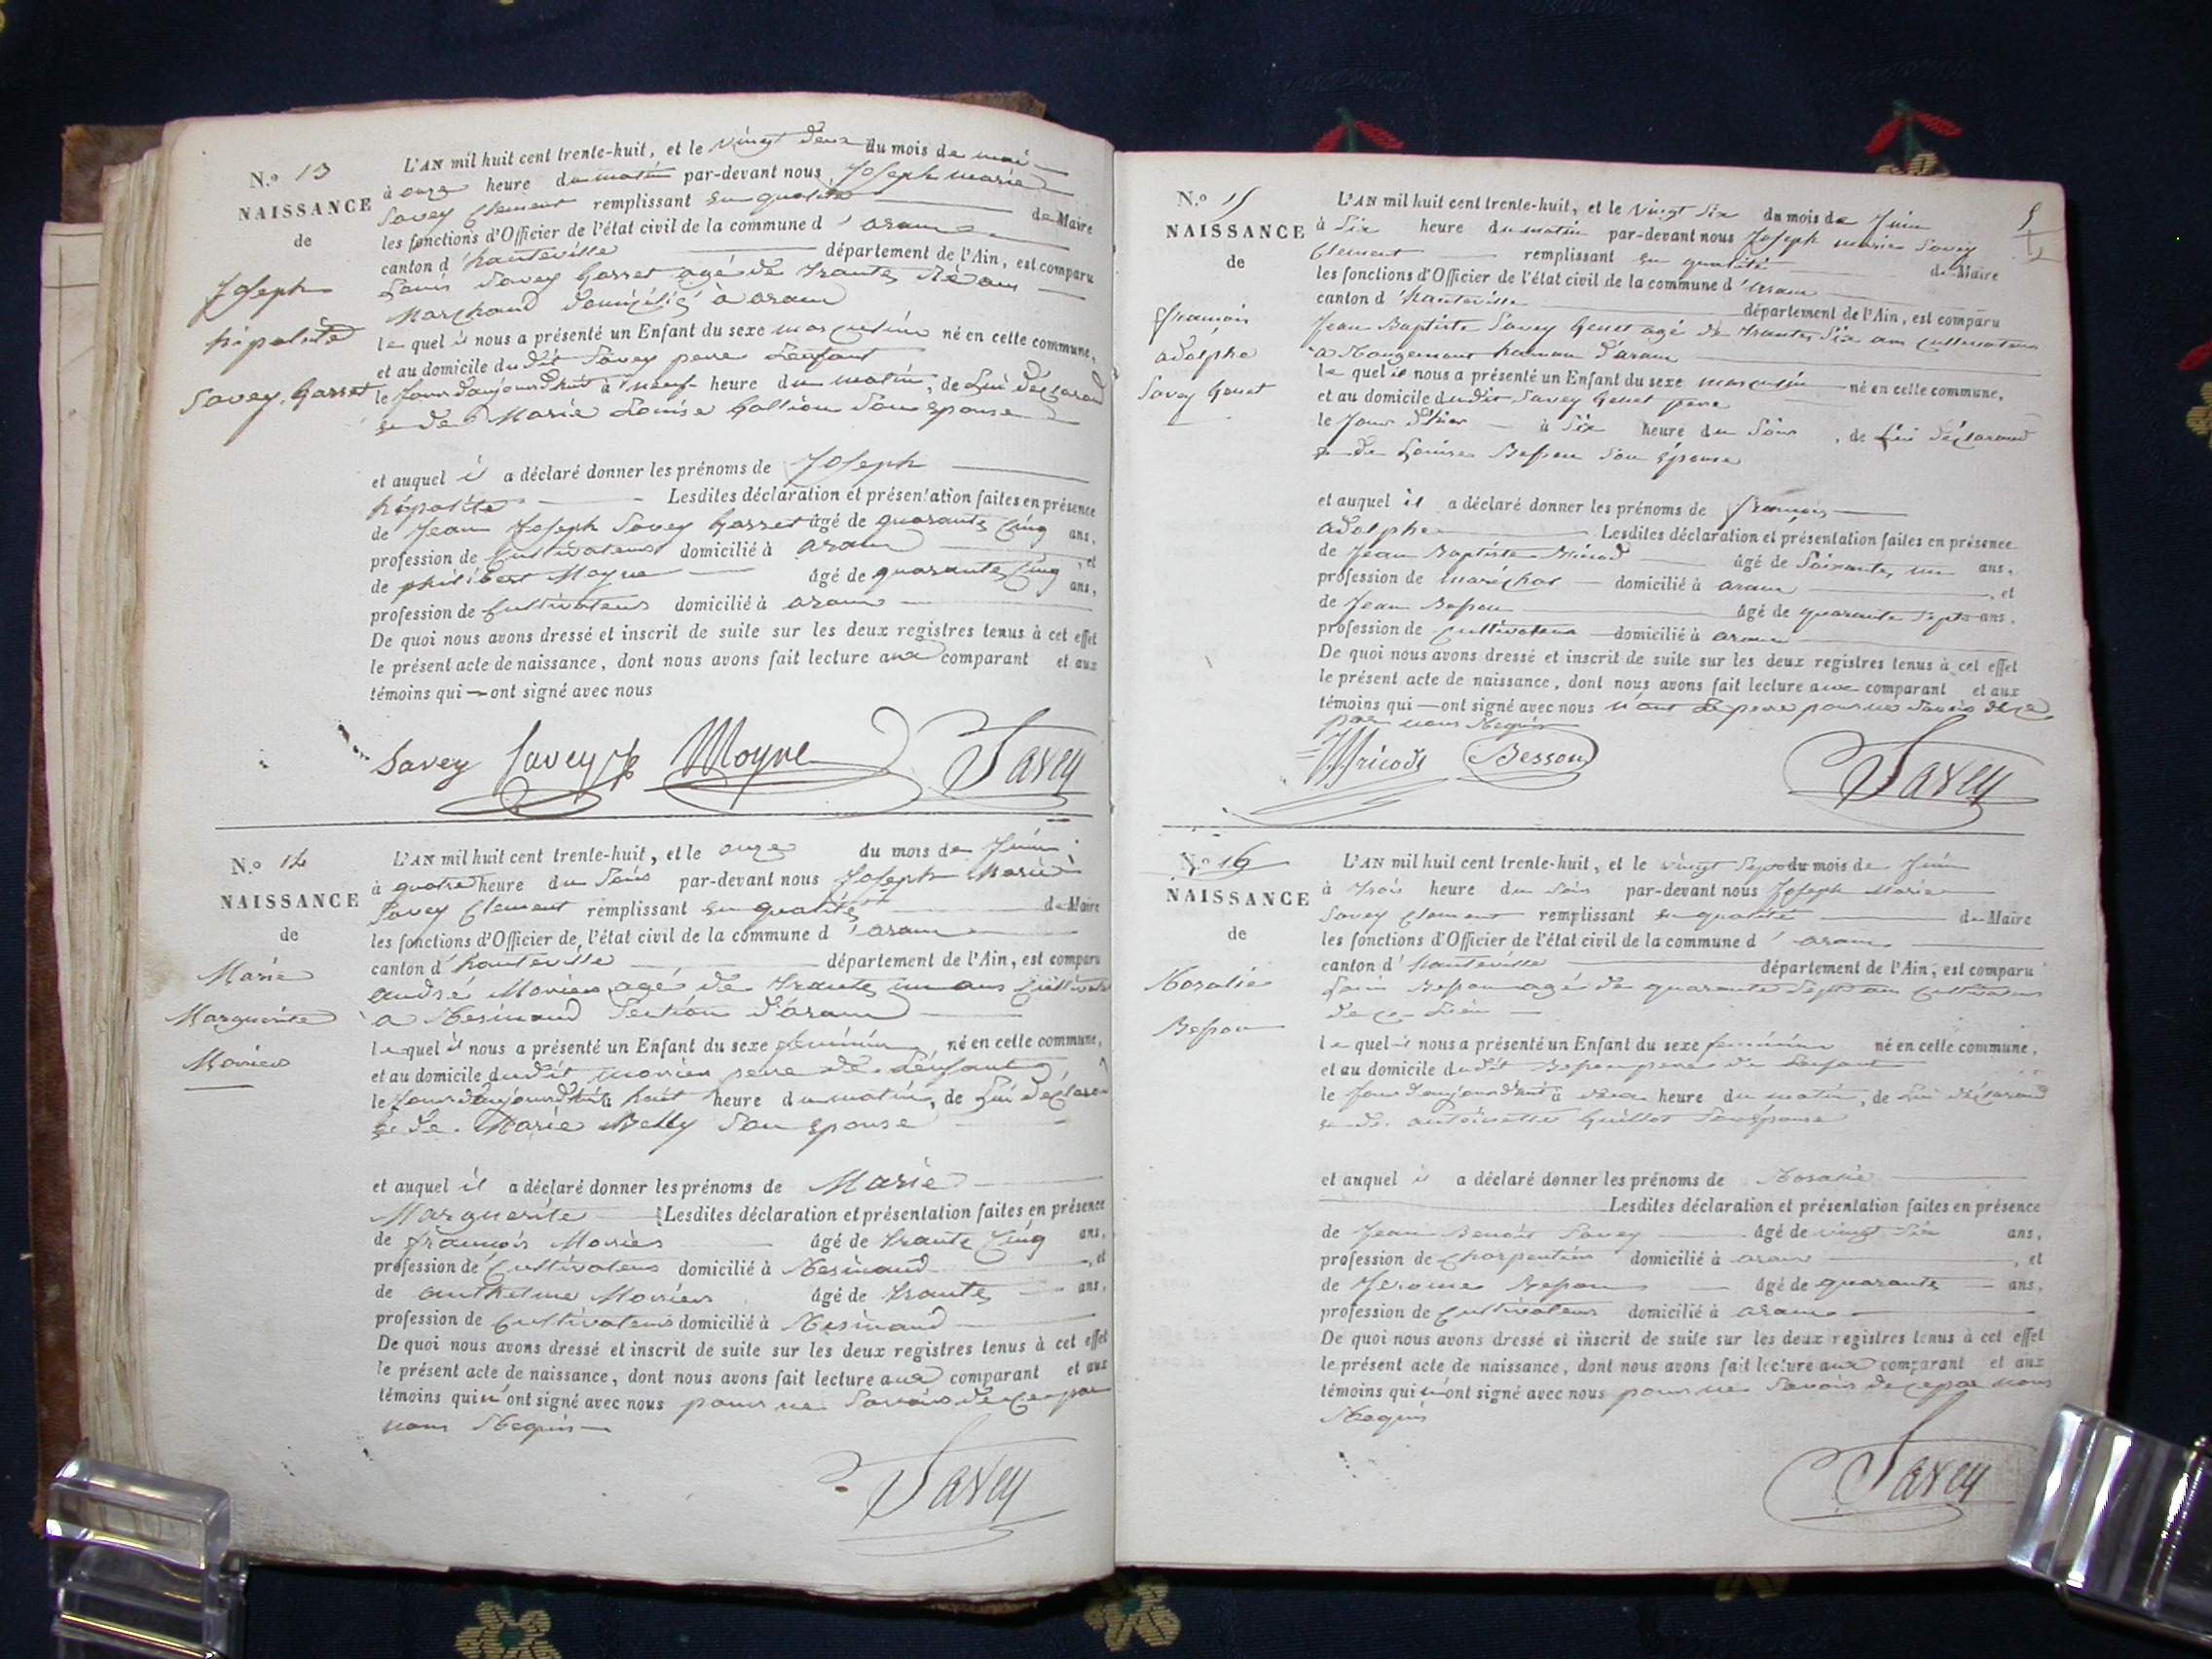 N.º 13
NAISSANCE
de
Joseph
hipolite
Savey Gasset
L'AN mil huit cent trente-huit, et le vingt deux du mois de mai
à onze heure du matin par-devant nous Joseph marie
Savey Clement remplissant en qualité de Maire
les fonctions d'Officier de l'état civil de la commune d'aranc
canton d'hauteville département de l'Ain, est comparu
Louis Savey Gasset agé de trante
Marchand à aranc
lequel il nous a présenté un Enfant du sexe masculin né en cette commune,
et au domicile dudit Savey pere Lenfant
le Jour daujourdhui à neuf heure du matin, de Lui déclarand
et de Marie Louise Gallion Son Epouse
et auquel il a déclaré donner les prénoms de Joseph
hipolite Lesdites déclaration et présentation faites en présence
de Jean Joseph Savey Gasset âgé de quarante Cinq ans,
profession de Cultivateur domicilié à aranc , et
de philibert Moyne âgé de quarante Cinq ans,
profession de Cultivateur domicilié à aranc
De quoi nous avons dressé et inscrit de suite sur les deux registres tenus à cet effet
le présent acte de naissance, dont nous avons fait lecture aux comparant et aux
témoins qui ont signé avec nous
Savey Savey Moyne Savey
N.º 14
NAISSANCE
de
Marie
Marguerite
Moriers
L'AN mil huit cent trente-huit, et le onze du mois de Juin
à quatre heure du Soir par-devant nous Joseph Marie
Savey Clement remplissant en qualité de Maire
les fonctions d'Officier de l'état civil de la commune d'aranc
canton d'hauteville département de l'Ain, est comparu
andré Moriers agé de trante un ans Cultivateur
a Resinand Section d'aranc
lequel il nous a présenté un Enfant du sexe feminin né en cette commune,
et au domicile dudit moriers pere de Lenfant
le Jour daujourdhui à huit heure du matin, de Lui déclarand
et de Marie Belly Son Epouse
et auquel il a déclaré donner les prénoms de Marie
Marguerite Lesdites déclaration et présentation faites en présence
de françois Moriers âgé de trante Cinq ans,
profession de Cultivateur domicilié à Resinand , et
de anthelme Moriers âgé de trante ans,
profession de Cultivateur domicilié à Resinand
De quoi nous avons dressé et inscrit de suite sur les deux registres tenus à cet effet
le présent acte de naissance, dont nous avons fait lecture aux comparant et aux
témoins qui n'ont signé avec nous pour ne Savoir de ce par
nous Requis
Savey
N.º 15
NAISSANCE
de
françois
adolphe
Savey Genet
L'AN mil huit cent trente-huit, et le vingt six du mois de Juin
à Six heure du matin par-devant nous Joseph marie Savey
Clement remplissant en qualité de Maire
les fonctions d'Officier de l'état civil de la commune d'aranc
canton d'hauteville département de l'Ain, est comparu
Jean Baptiste Savey Genet agé de trante Six ans Cultivateur
a Rougemont hamau d'aranc
lequel il nous a présenté un Enfant du sexe masculin né en cette commune,
et au domicile dudit Savey Genet pere
le Jour d'hier à Six heure du Soir , de Lui déclarand
et de Louise Besson Son Epouse
et auquel il a déclaré donner les prénoms de françois
adolphe Lesdites déclaration et présentation faites en présence
de Jean Baptiste Bricod âgé de Soixante un ans,
profession de maréchal domicilié à aranc , et
de Jean Besson âgé de quarante Sept ans,
profession de Cultivateur domicilié à aranc
De quoi nous avons dressé et inscrit de suite sur les deux registres tenus à cet effet
le présent acte de naissance, dont nous avons fait lecture aux comparant et aux
témoins qui ont signé avec nous non le pere pour ne Savoir de ce
par nous Requis
Bricod Besson Savey
N.º 16
NAISSANCE
de
Rosalie
Besson
L'AN mil huit cent trente-huit, et le vingt Sept du mois de Juin
à trois heure du Soir par-devant nous Joseph Marie
Savey Clement remplissant en qualité de Maire
les fonctions d'Officier de l'état civil de la commune d'aranc
canton d'hauteville département de l'Ain, est comparu
Louis Besson agé de quarante Sept ans Cultivateur
de ce Lieu
lequel il nous a présenté un Enfant du sexe feminin né en cette commune,
et au domicile dudit Besson pere de Lenfant
le Jour daujourdhui à deux heure du matin, de Lui déclarand
et de antoinette Guillot Son Epouse
et auquel il a déclaré donner les prénoms de Rosalie
Lesdites déclaration et présentation faites en présence
de Jean Benoit Savey âgé de vingt Six ans,
profession de Charpentier domicilié à aranc , et
de Jerome Besson âgé de quarante ans,
profession de Cultivateur domicilié à aranc
De quoi nous avons dressé et inscrit de suite sur les deux registres tenus à cet effet
le présent acte de naissance, dont nous avons fait lecture aux comparant et aux
témoins qui n'ont signé avec nous pour ne Savoir de ce par nous
Requis
Savey